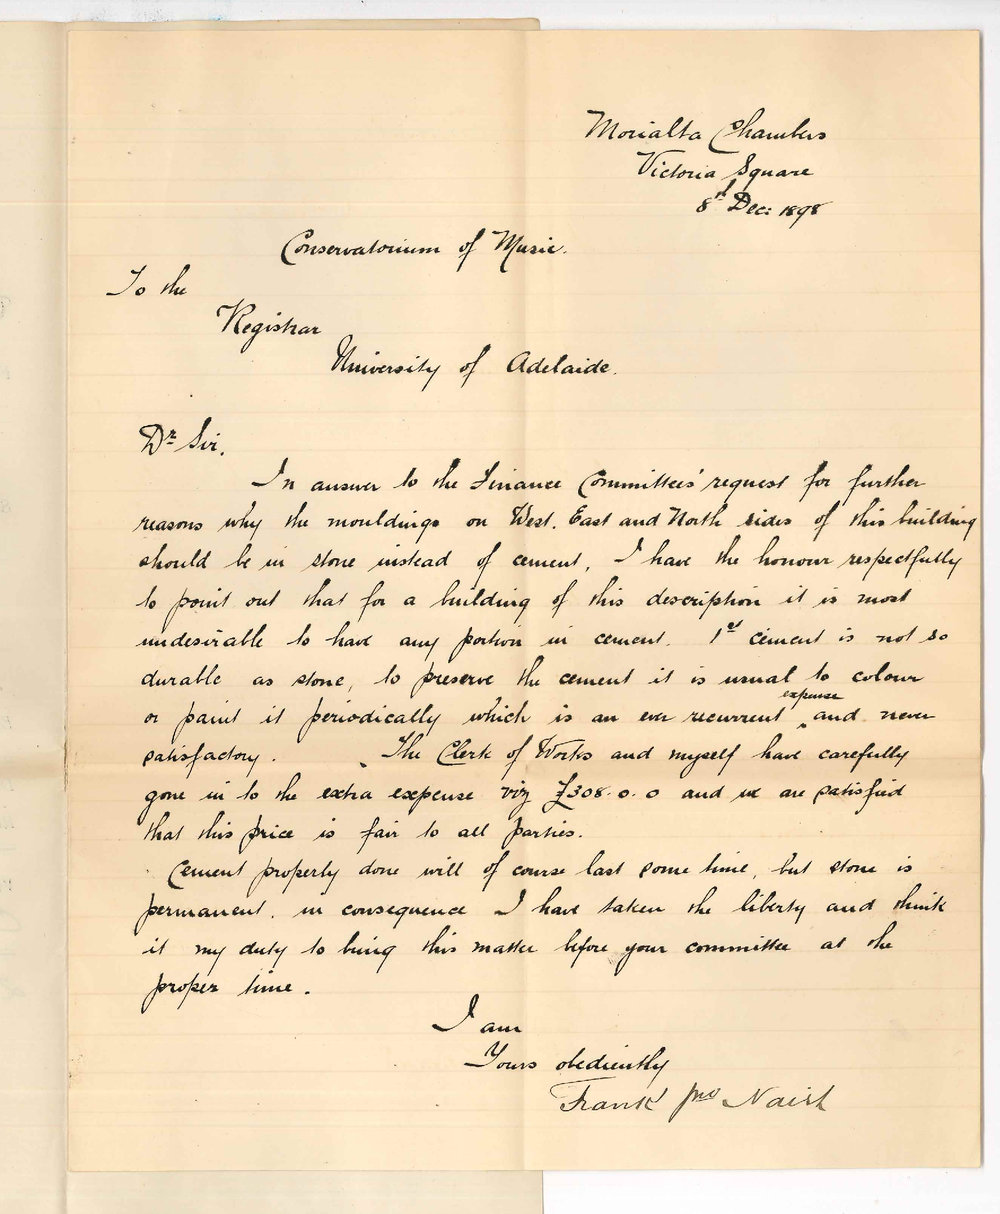 Morialta Chambers
Victoria Square
8th Dec: 1898
Conservatorium of Music.
To the
Registrar
University of Adelaide.
Dr Sir,
In answer to the Finance Committee's request for further
reasons why the mouldings on West, East and North sides of this building
should be in stone instead of cement, I have the honour respectfully
to point out that for a building of this description it is most
undesirable to have any portion in cement. 1st cement is not so
durable as stone, to preserve the cement it is usual to colour
or paint it periodically which is an ever recurrent expense and never
satisfactory. The Clerk of Works and myself have carefully
gone in to the extra expense viz £308.0.0 and we are satisfied
that this price is fair to all parties.
Cement properly done will of course last some time, but stone is
permanent, in consequence I have taken the liberty and think
it my duty to bring this matter before your committee at the
proper time.
I am
Yours obediently
Frank Jno Naish